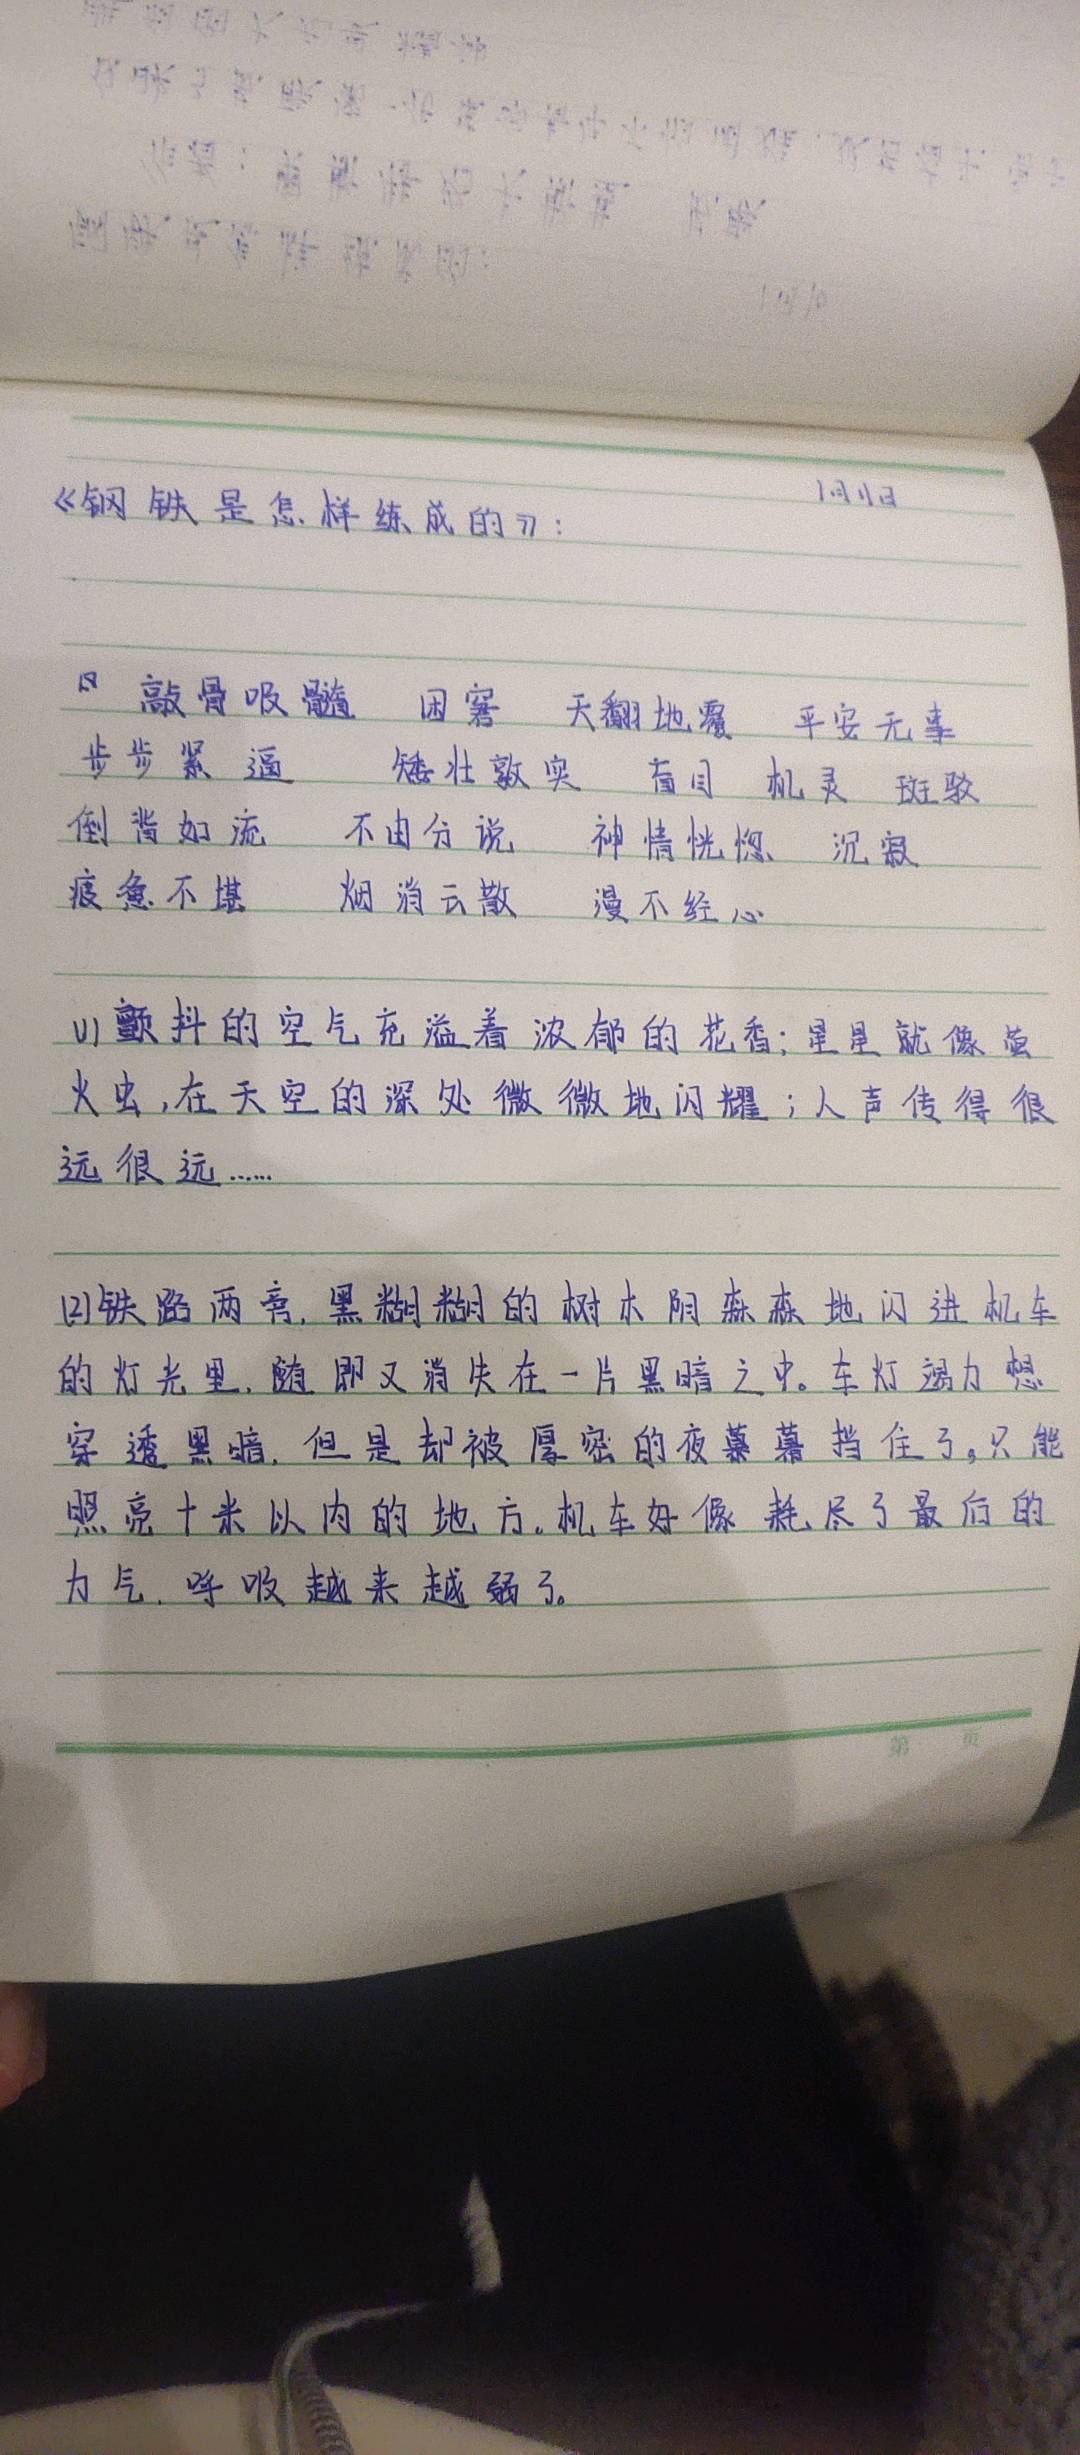 1月11日
《钢铁是怎样练成的》:
敲骨吸髓 困窘 天翻地覆 平安无事
步步紧逼 矮壮敦实 盲目 机灵 斑驳
倒背如流 不由分说 神情恍惚 沉寂
疲惫不堪 烟消云散 漫不经心
(1)颤抖的空气充溢着浓郁的花香;星星就像萤
火虫,在天空的深处微微地闪耀;人声传得很
远很远……
(2)铁路两旁,黑糊糊的树木阴森森地闪进机车
的灯光里,随即又消失在一片黑暗之中。车灯竭力想
穿透黑暗,但是却被厚密的夜幕幕挡住了,只能
照亮十米以内的地方。机车好像耗尽了最后的
力气,呼吸越来越弱了。
第 页